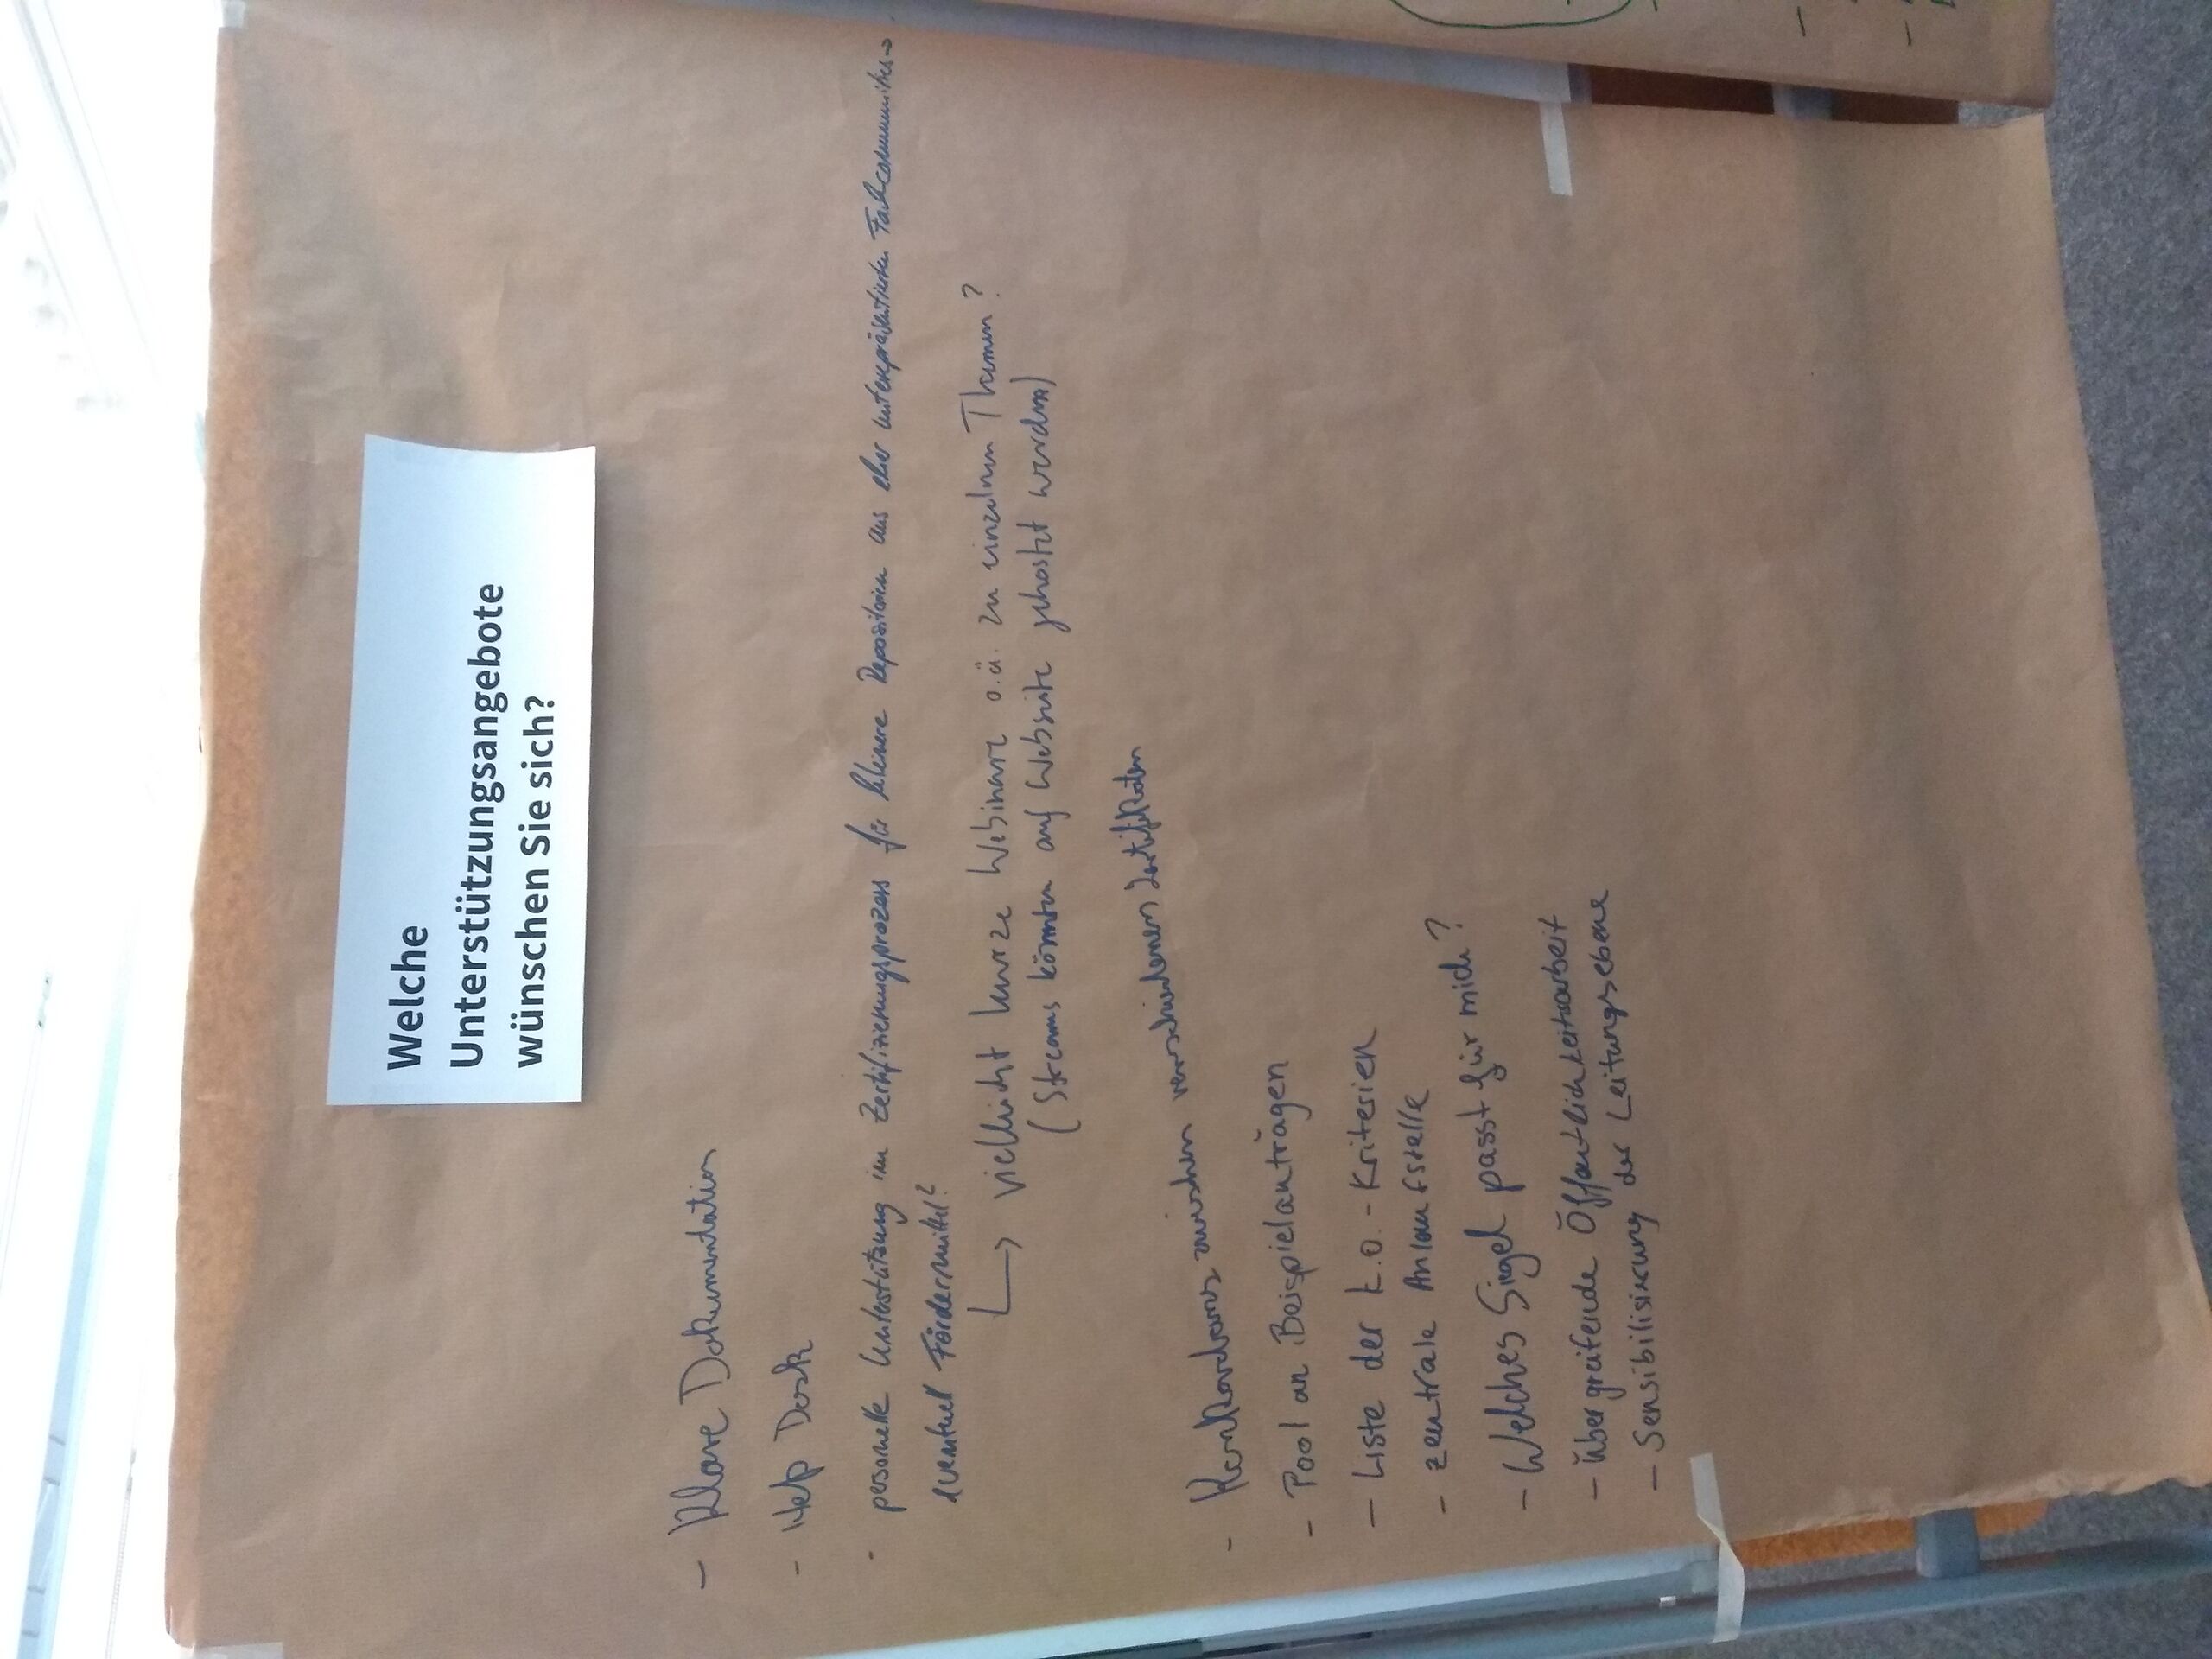 Welche
Unterstützungsangebote
wünschen Sie sich?
- Klare Dokumentation
- Help Desk
- personelle Unterstützung im Zertifizierungsprozess für kleinere Repositorien aus eher unterepräsentierten Fachcommunities →
eventuell Fördermittel?
↳ vielleicht kurze Webinare o.ä. zu einzelnen Themen?
(Streams könnten auf Website gehostet werden)
- zwischen verschiedenen Zertifikaten
- Pool an Beispielanträgen
- Liste der k.o.-Kriterien
- zentrale Anlaufstelle
- Welches Siegel passt für mich?
- Übergreifende Öffentlichkeitsarbeit
- Sensibilisierung der Leitungsebene